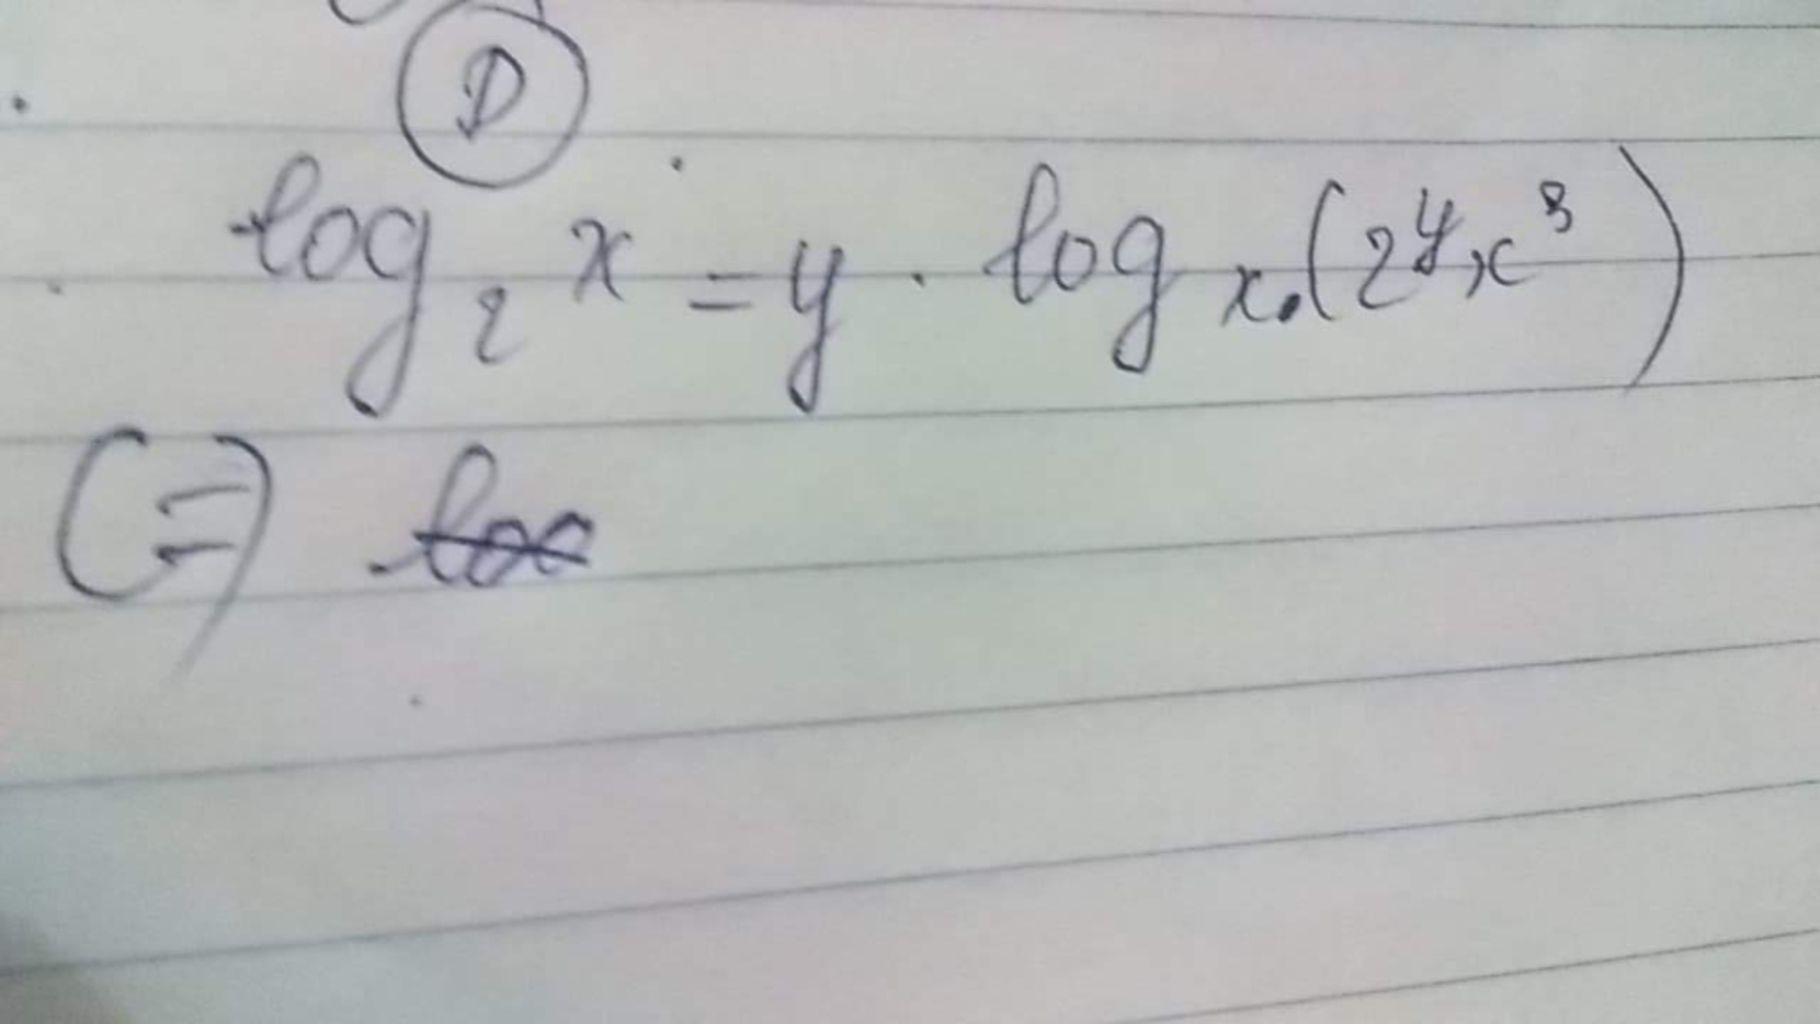 D
log₂ x = y . logₓ.(2^y x³)
(=) loc